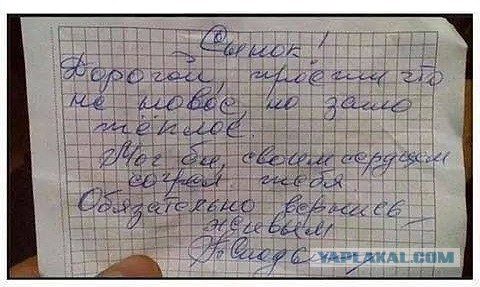 Сынок!
Дорогой, прости что
не новое, но зато
тёплое.
Мог бы, своим сердцем
согрел тебя
Обязательно вернись
живым
YAPLAKAL.COM